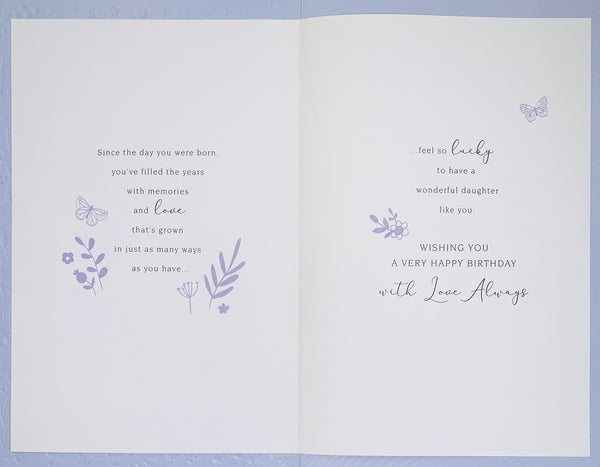 Since the day you were born,
you've filled the years
with memories
and love
that's grown
in just as many ways
as you have...
...feel so lucky
to have a
wonderful daughter
like you.
WISHING YOU
A VERY HAPPY BIRTHDAY
with Love Always